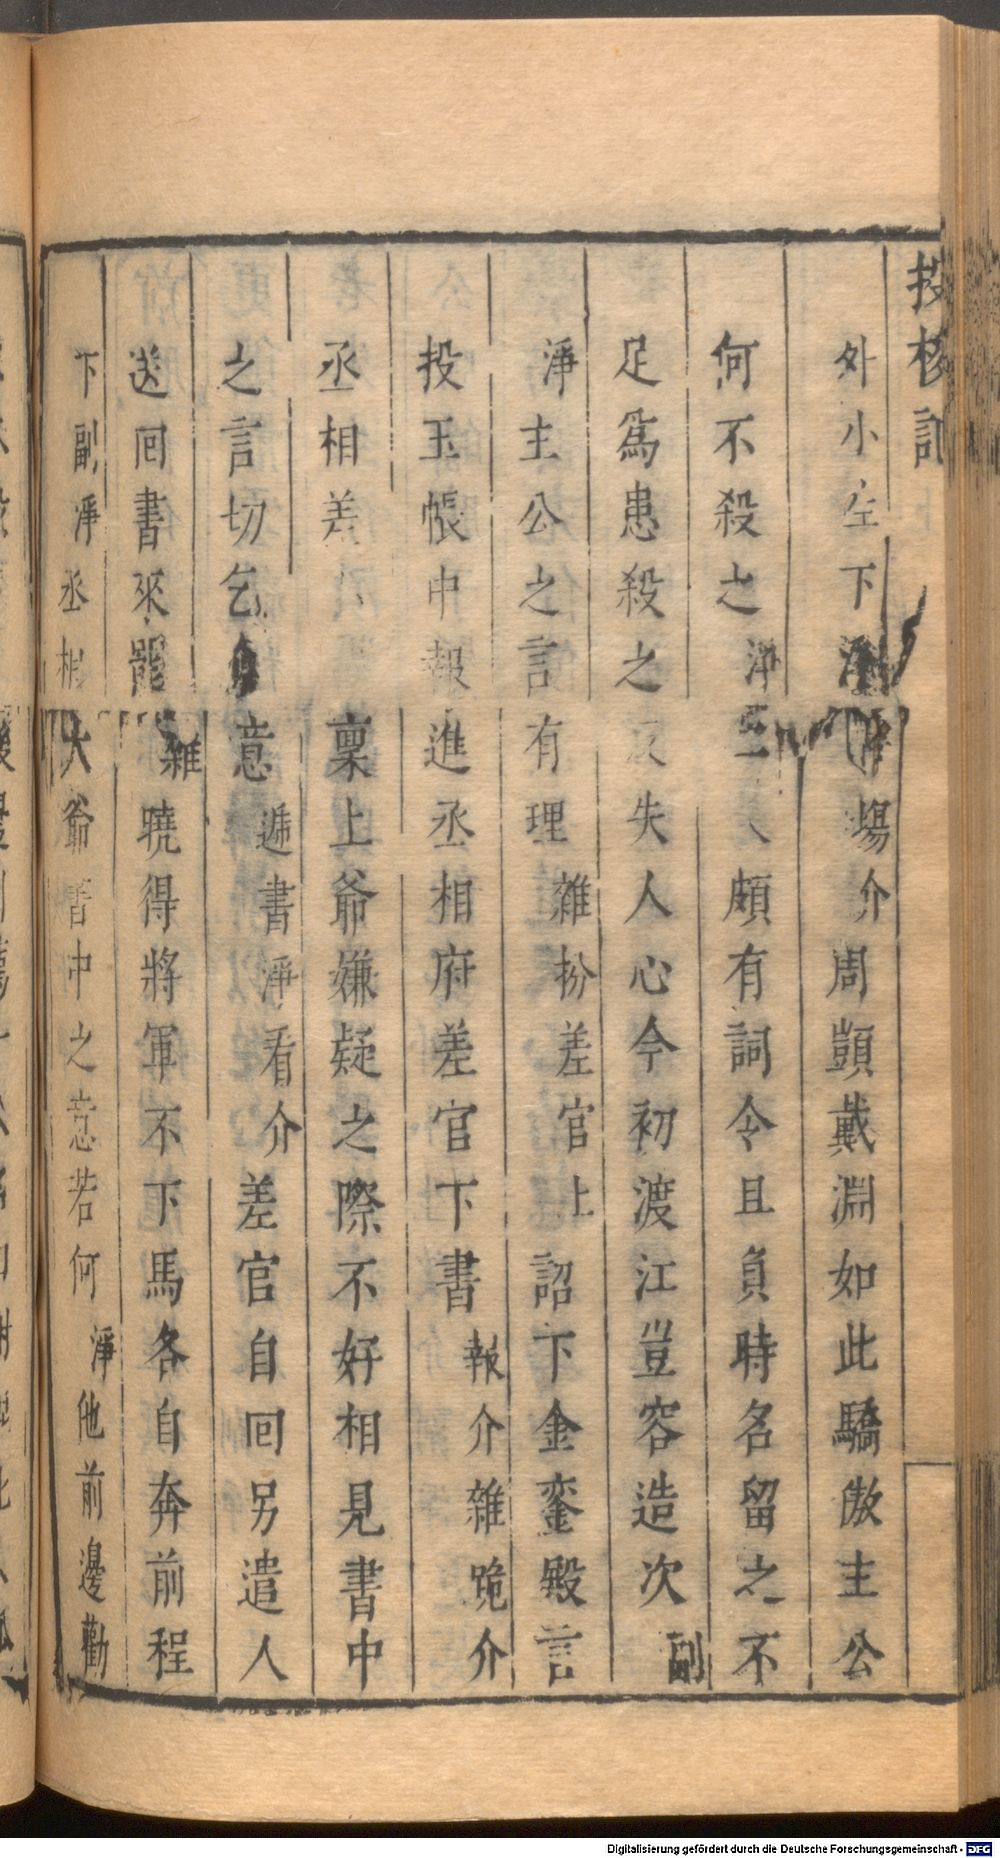 投梭記
外小生下淨 場介周顗戴淵如此驕傲主公
何不殺之淨 頗有詞令且負時名留之不
足爲患殺之反失人心今初渡江豈容造次副
淨主公之言有理雜扮差官上詔下金鑾殿言
投玉帳中報進丞相府差官下書報介雜跪介
丞相差 稟上爺嫌疑之際不好相見書中
之言切乞 意遞書淨看介差官自回另遣人
送回書來罷雜曉得將軍不下馬各自奔前程
下副淨丞相大爺書中之意若何淨他前邊勸
Digitalisierung gefördert durch die Deutsche Forschungsgemeinschaft - DFG